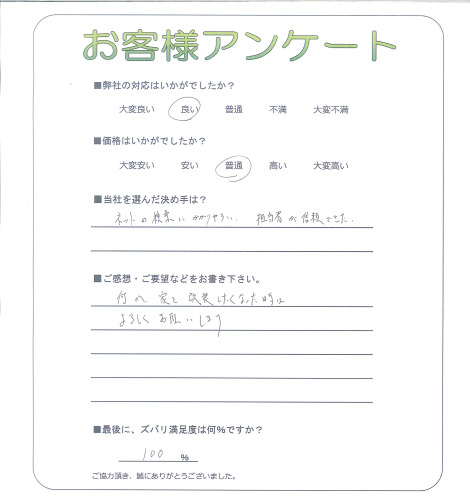 お客様アンケート
■弊社の対応はいかがでしたか？
大変良い 良い 普通 不満 大変不満
■価格はいかがでしたか？
大変安い 安い 普通 高い 大変高い
■当社を選んだ決め手は？
ネットの検索に かかりやすい． 担当者が信頼できた．
■ご感想・ご要望などをお書き下さい。
何の 家を 改装 したくなった時は
よろしく お願いします
■最後に、ズバリ満足度は何％ですか？
100 ％
ご協力頂き、誠にありがとうございました。